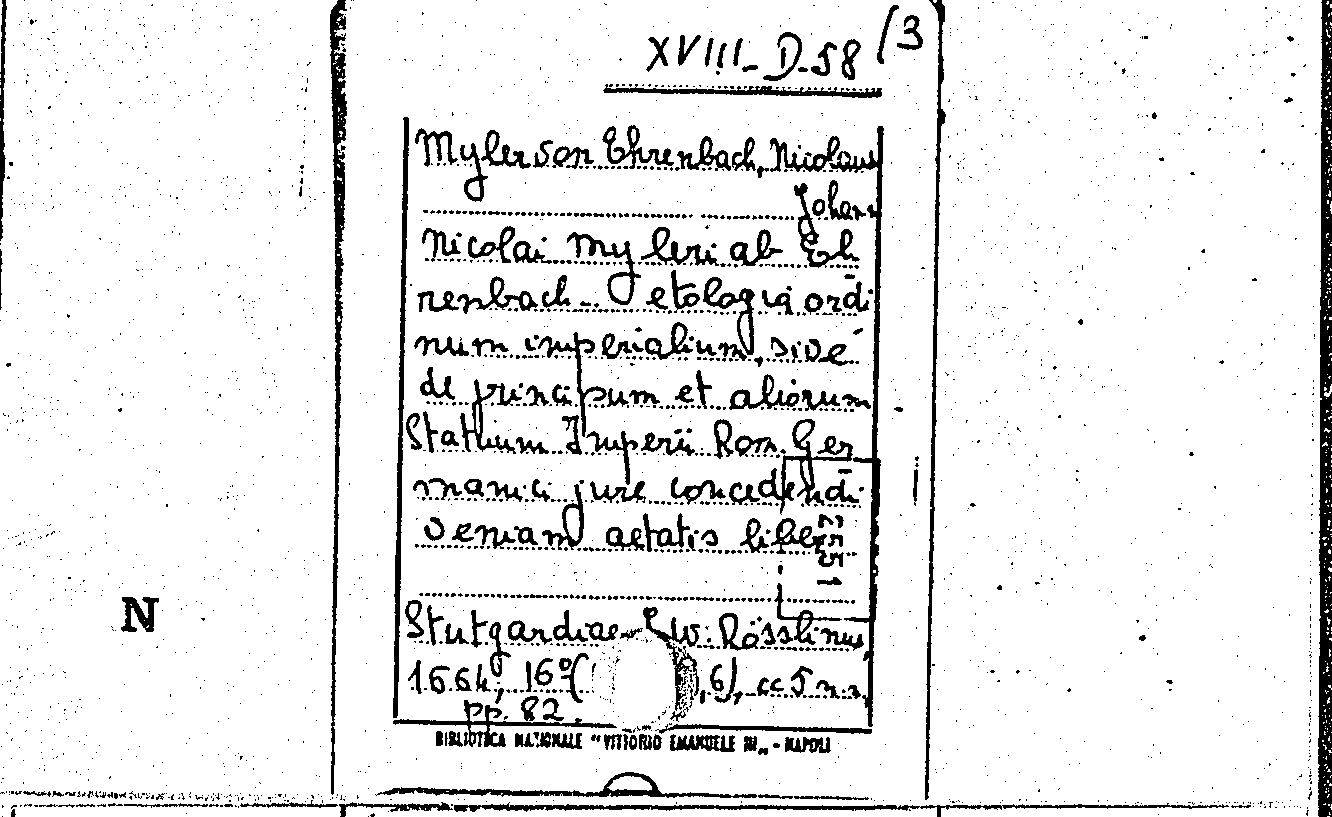 XVIII-D-58 /3
Myler von Ehrenbach, Nicolaus
Johann
Nicolai Myleri ab Eh
renbach... etologia ordi
num imperialium, sivé
de principum et aliorum
Statuum Imperii Rom. Ger
manici jure concedendi
veniam aetatis liber
2351
N
Stutgardiae, W. Rösslinus,
1664, 16º( ,6), cc 5 n.n.
pp. 82.
BIBLIOTECA NAZIONALE "VITTORIO EMANUELE III„ - NAPOLI